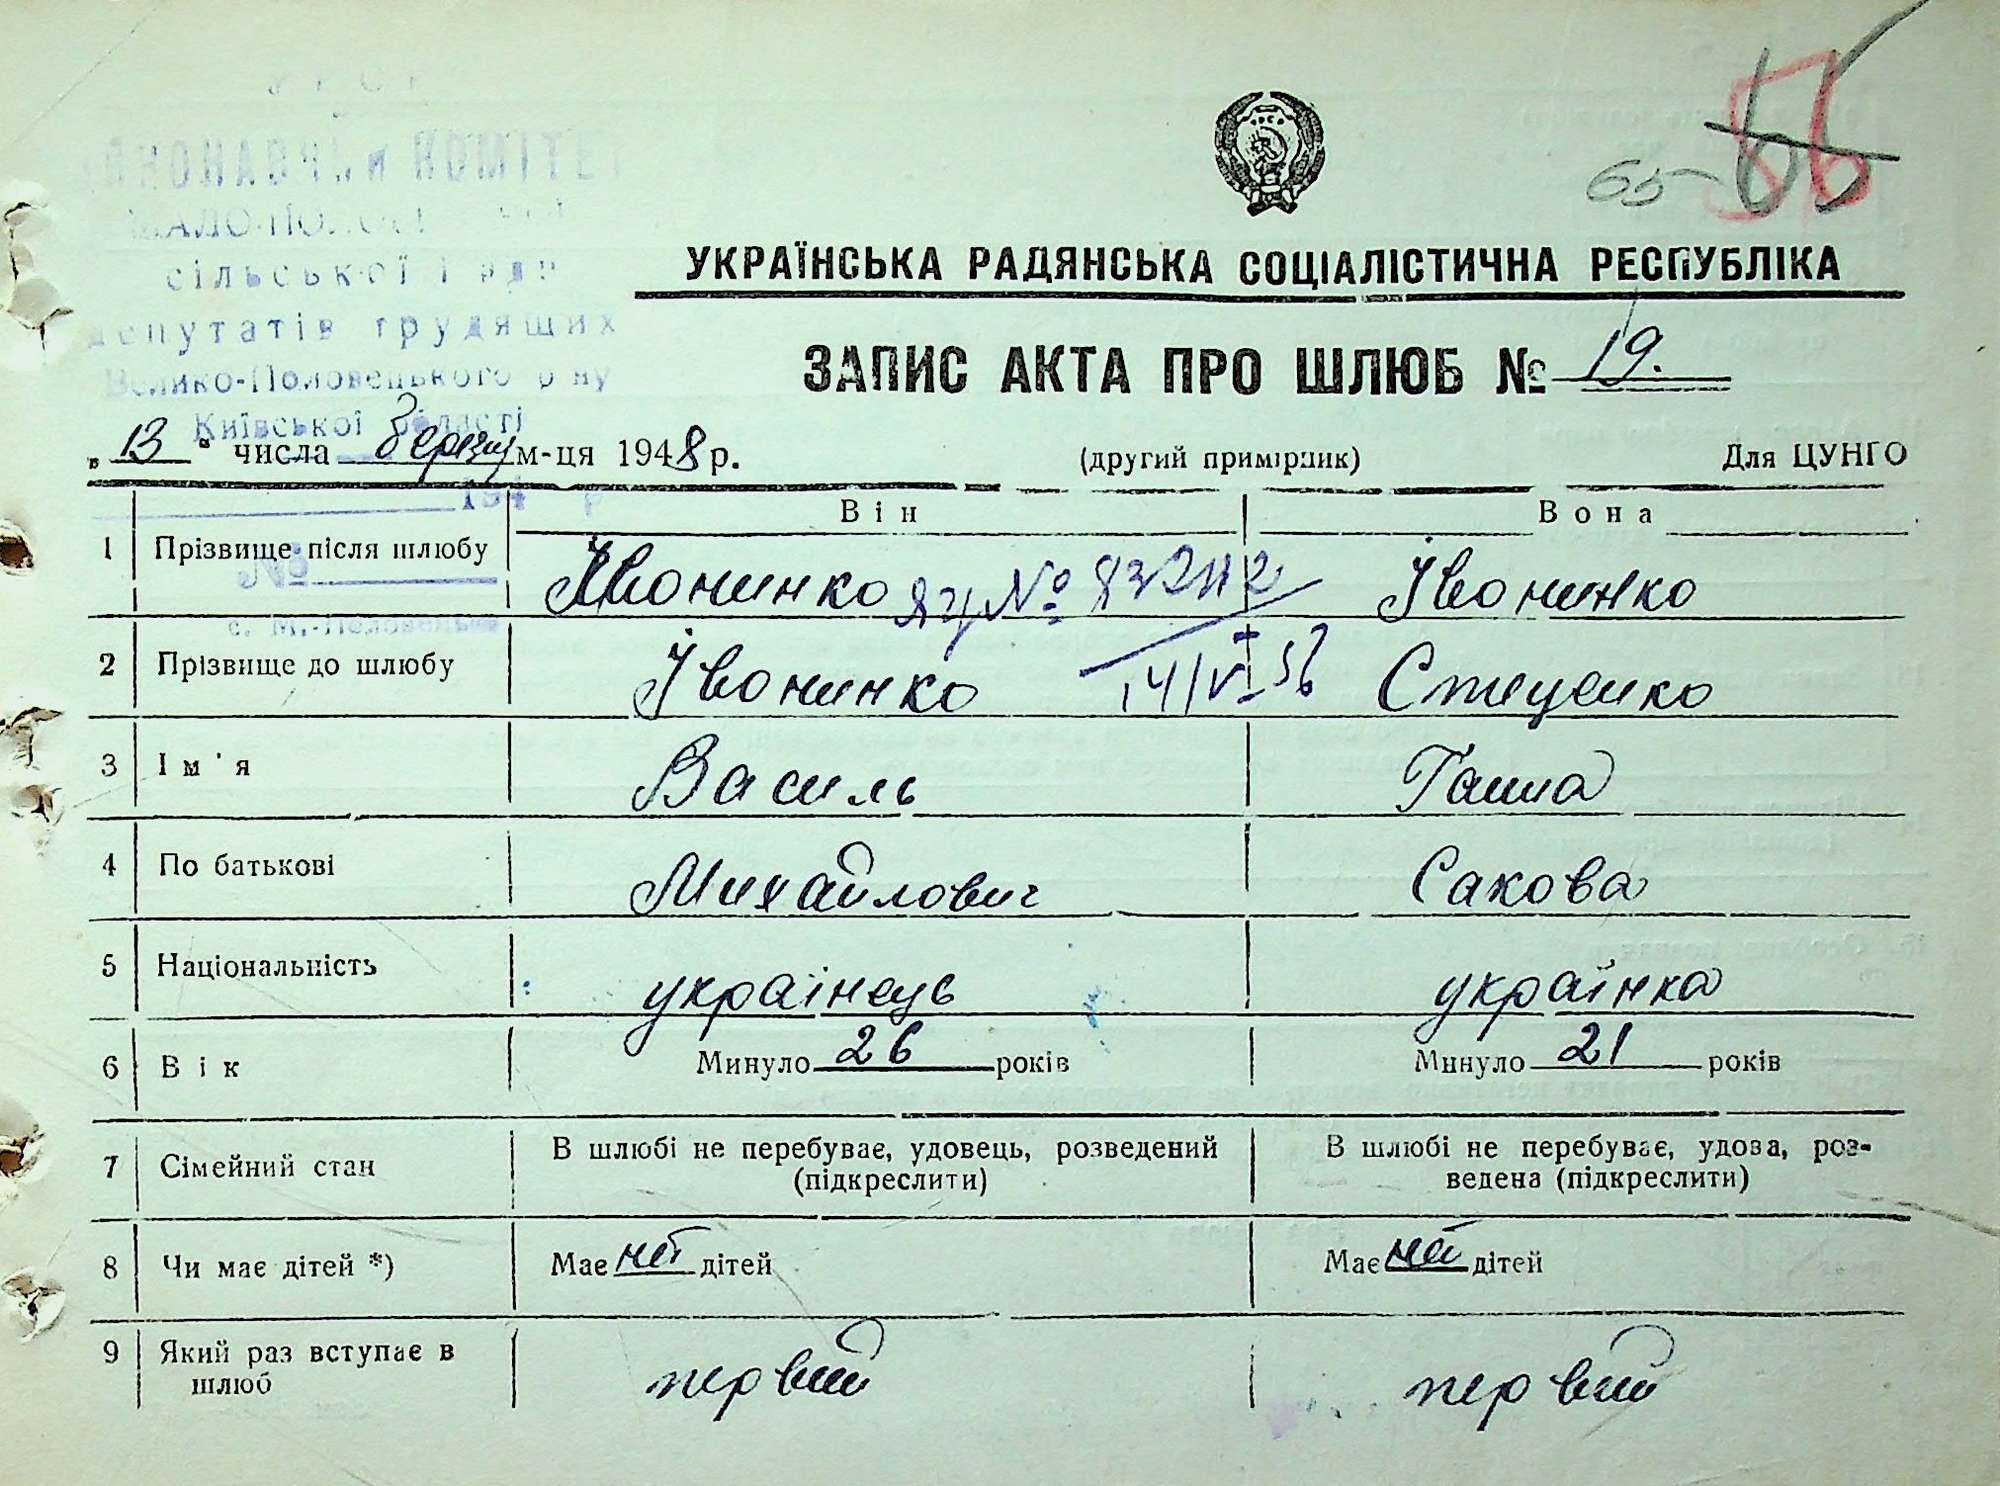 УРСР
ВИКОНАВЧИЙ КОМІТЕТ
МАЛО-ПОЛОВЕЦЬКОЇ
сільської Ради
депутатів трудящих
Велико-Половецького р-ну
Київської області
194 р
№
с. М.-Половецьке
65 56
УКРАЇНСЬКА РАДЯНСЬКА СОЦІАЛІСТИЧНА РЕСПУБЛІКА
ЗАПИС АКТА ПРО ШЛЮБ № 19.
„13“ числа березня м-ця 1948 р. (другий примірник) Для ЦУНГО
Він Вона
1 Прізвище після шлюбу Івонинко Івонинко
2 Прізвище до шлюбу Івонинко 14/V-56 Стеценко
3 Ім'я Василь Ганна
4 По батькові Михайлович Сакова
5 Національність українець українка
6 Вік Минуло 26 років Минуло 21 років
7 Сімейний стан В шлюбі не перебуває, удовець, розведений (підкреслити) В шлюбі не перебуває, удова, роз-
ведена (підкреслити)
8 Чи має дітей *) Має неї дітей Має неї дітей
9 Який раз вступає в шлюб первий первий